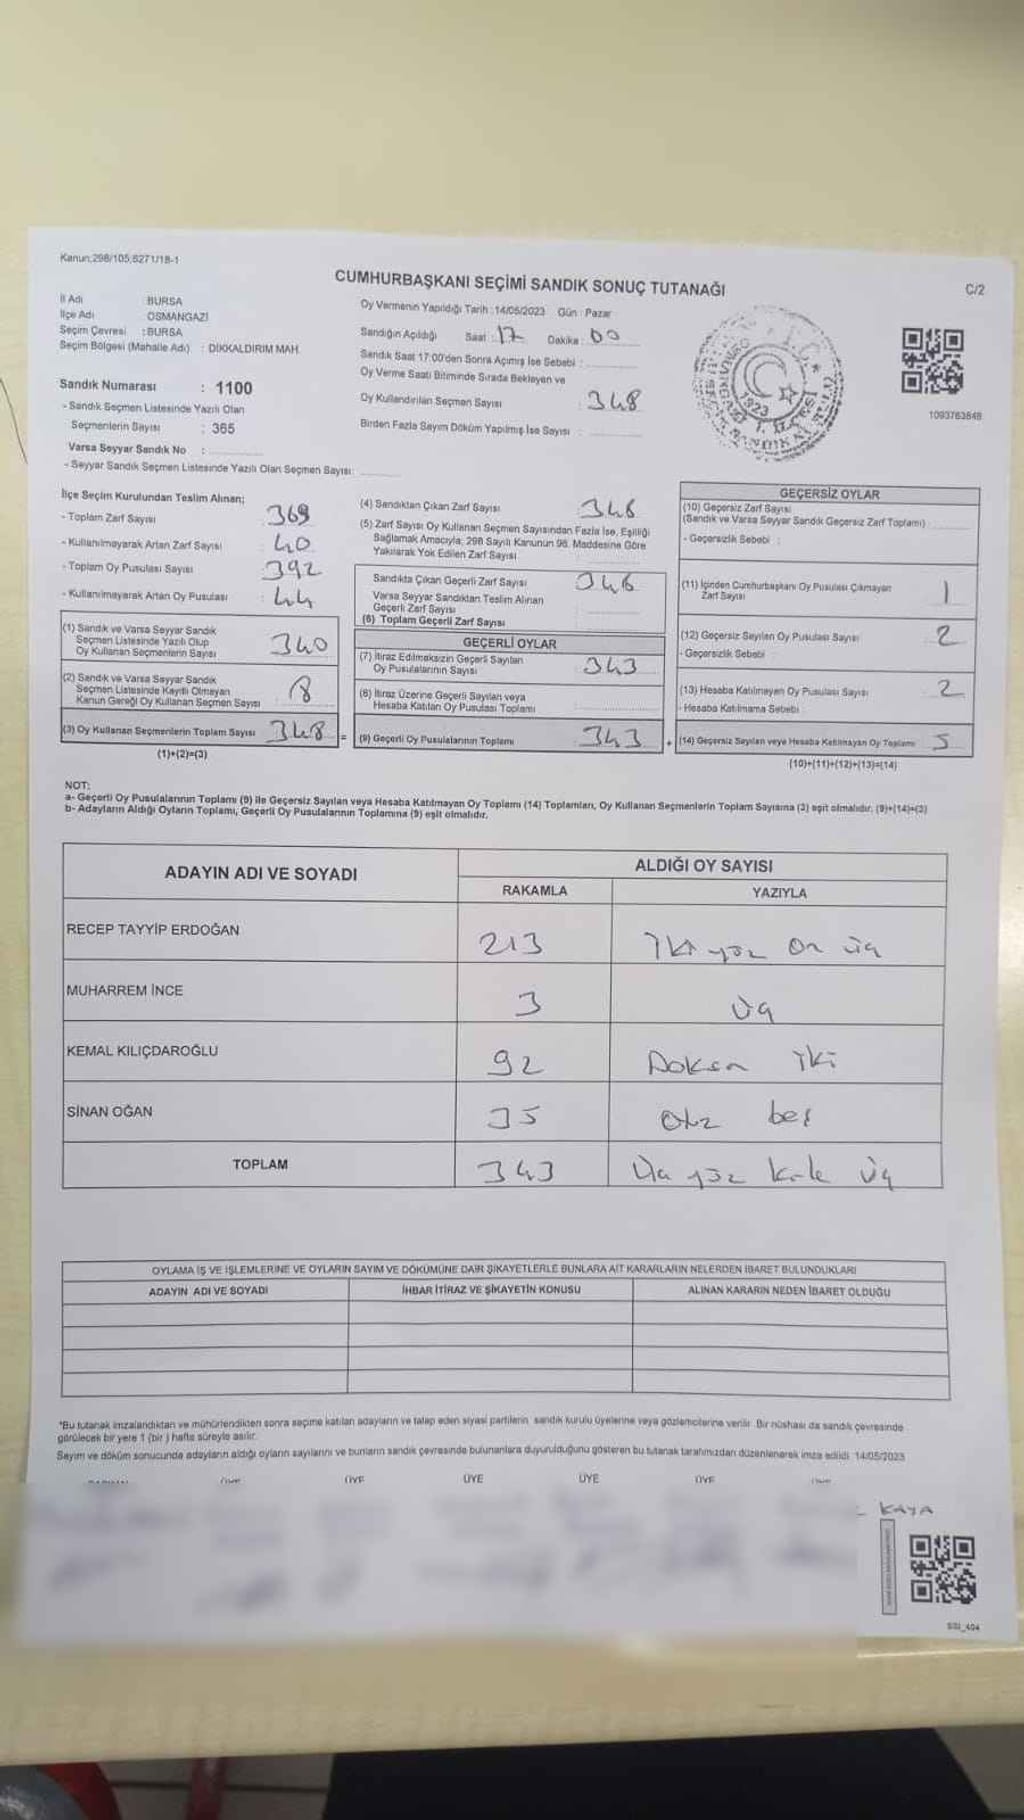 Kanun;298/105;6271/18-1
CUMHURBAŞKANI SEÇİMİ SANDIK SONUÇ TUTANAĞI
C/2
İl Adı BURSA
İlçe Adı OSMANGAZİ
Seçim Çevresi : BURSA
Seçim Bölgesi (Mahalle Adı) : DİKKALDIRIM MAH.
Sandık Numarası : 1100
- Sandık Seçmen Listesinde Yazılı Olan
Seçmenlerin Sayısı : 365
Varsa Seyyar Sandık No :
- Seyyar Sandık Seçmen Listesinde Yazılı Olan Seçmen Sayısı:
Oy Vermenin Yapıldığı Tarih : 14/05/2023 Gün : Pazar
Sandığın Açıldığı Saat : 17 Dakika : 00
Sandık Saat 17:00'den Sonra Açımış İse Sebebi :
Oy Verme Saati Bitiminde Sırada Bekleyen ve
Oy Kullandırılan Seçmen Sayısı : 348
Birden Fazla Sayım Döküm Yapılmış İse Sayısı :
1923
1093763848
İlçe Seçim Kurulundan Teslim Alınan;
- Toplam Zarf Sayısı : 369
- Kullanılmayarak Artan Zarf Sayısı : 40
- Toplam Oy Pusulası Sayısı : 392
- Kullanılmayarak Artan Oy Pusulası : 44
(1) Sandık ve Varsa Seyyar Sandık
Seçmen Listesinde Yazılı Olup
Oy Kullanan Seçmenlerin Sayısı 340
(2) Sandık ve Varsa Seyyar Sandık
Seçmen Listesinde Kayıtlı Olmayan
Kanun Gereği Oy Kullanan Seçmen Sayısı 8
(3) Oy Kullanan Seçmenlerin Toplam Sayısı 348 =
(1)+(2)=(3)
(4) Sandıktan Çıkan Zarf Sayısı 348
(5) Zarf Sayısı Oy Kullanan Seçmen Sayısından Fazla İse, Eşitliği
Sağlamak Amacıyla, 298 Sayılı Kanunun 98. Maddesine Göre
Yakılarak Yok Edilen Zarf Sayısı
Sandıkta Çıkan Geçerli Zarf Sayısı 348
Varsa Seyyar Sandıktan Teslim Alınan
Geçerli Zarf Sayısı
(6) Toplam Geçerli Zarf Sayısı
GEÇERLİ OYLAR
(7) İtiraz Edilmeksizin Geçerli Sayılan
Oy Pusulalarının Sayısı 343
(8) İtiraz Üzerine Geçerli Sayılan veya
Hesaba Katılan Oy Pusulası Toplamı
(9) Geçerli Oy Pusulalarının Toplamı 343 +
GEÇERSİZ OYLAR
(10) Geçersiz Zarf Sayısı
(Sandık ve Varsa Seyyar Sandık Geçersiz Zarf Toplamı)
- Geçersizlik Sebebi :
(11) İçinden Cumhurbaşkanı Oy Pusulası Çıkmayan
Zarf Sayısı 1
(12) Geçersiz Sayılan Oy Pusulası Sayısı 2
- Geçersizlik Sebebi
(13) Hesaba Katılmayan Oy Pusulası Sayısı 2
- Hesaba Katılmama Sebebi
(14) Geçersiz Sayılan veya Hesaba Katılmayan Oy Toplamı 5
(10)+(11)+(12)+(13)=(14)
NOT:
a- Geçerli Oy Pusulalarının Toplamı (9) ile Geçersiz Sayılan veya Hesaba Katılmayan Oy Toplamı (14) Toplamları, Oy Kullanan Seçmenlerin Toplam Sayısına (3) eşit olmalıdır. (9)+(14)=(3)
b- Adayların Aldığı Oyların Toplamı, Geçerli Oy Pusulalarının Toplamına (9) eşit olmalıdır.
ADAYIN ADI VE SOYADI
ALDIĞI OY SAYISI
RAKAMLA YAZIYLA
RECEP TAYYİP ERDOĞAN 213 İki yüz on üç
MUHARREM İNCE 3 üç
KEMAL KILIÇDAROĞLU 92 Doksan iki
SİNAN OĞAN 35 otuz beş
TOPLAM 343 Üç yüz kırk üç
OYLAMA İŞ VE İŞLEMLERİNE VE OYLARIN SAYIM VE DÖKÜMÜNE DAİR ŞİKAYETLERLE BUNLARA AİT KARARLARIN NELERDEN İBARET BULUNDUKLARI
ADAYIN ADI VE SOYADI İHBAR İTİRAZ VE ŞİKAYETİN KONUSU ALINAN KARARIN NEDEN İBARET OLDUĞU
*Bu tutanak imzalandıktan ve mühürlendikten sonra seçime katılan adayların ve talep eden siyasi partilerin sandık kurulu üyelerine veya gözlemcilerine verilir. Bir nüshası da sandık çevresinde
görülecek bir yere 1 (bir ) hafta süreyle asılır.
Sayım ve döküm sonucunda adayların aldığı oyların sayılarını ve bunların sandık çevresinde bulunanlara duyurulduğunu gösteren bu tutanak tarafımızdan düzenlenerek imza edildi. 14/05/2023
ÜYE ÜYE ÜYE ÜYE
KAYA